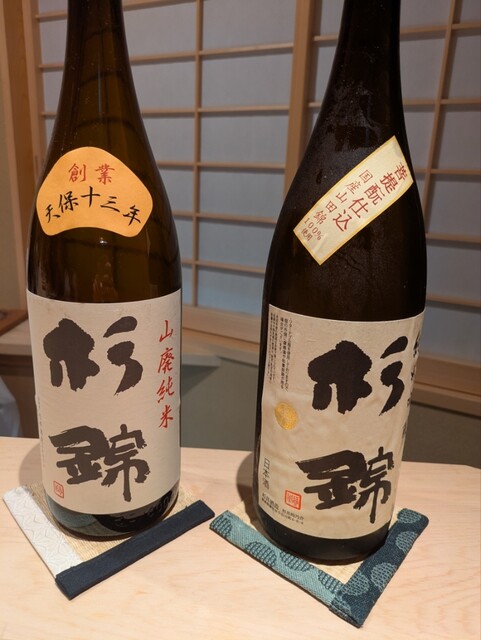 創業
天保十三年
杉錦
山廃純米
菩提酛仕込
国産山田錦
100%
使用
杉錦
日本酒